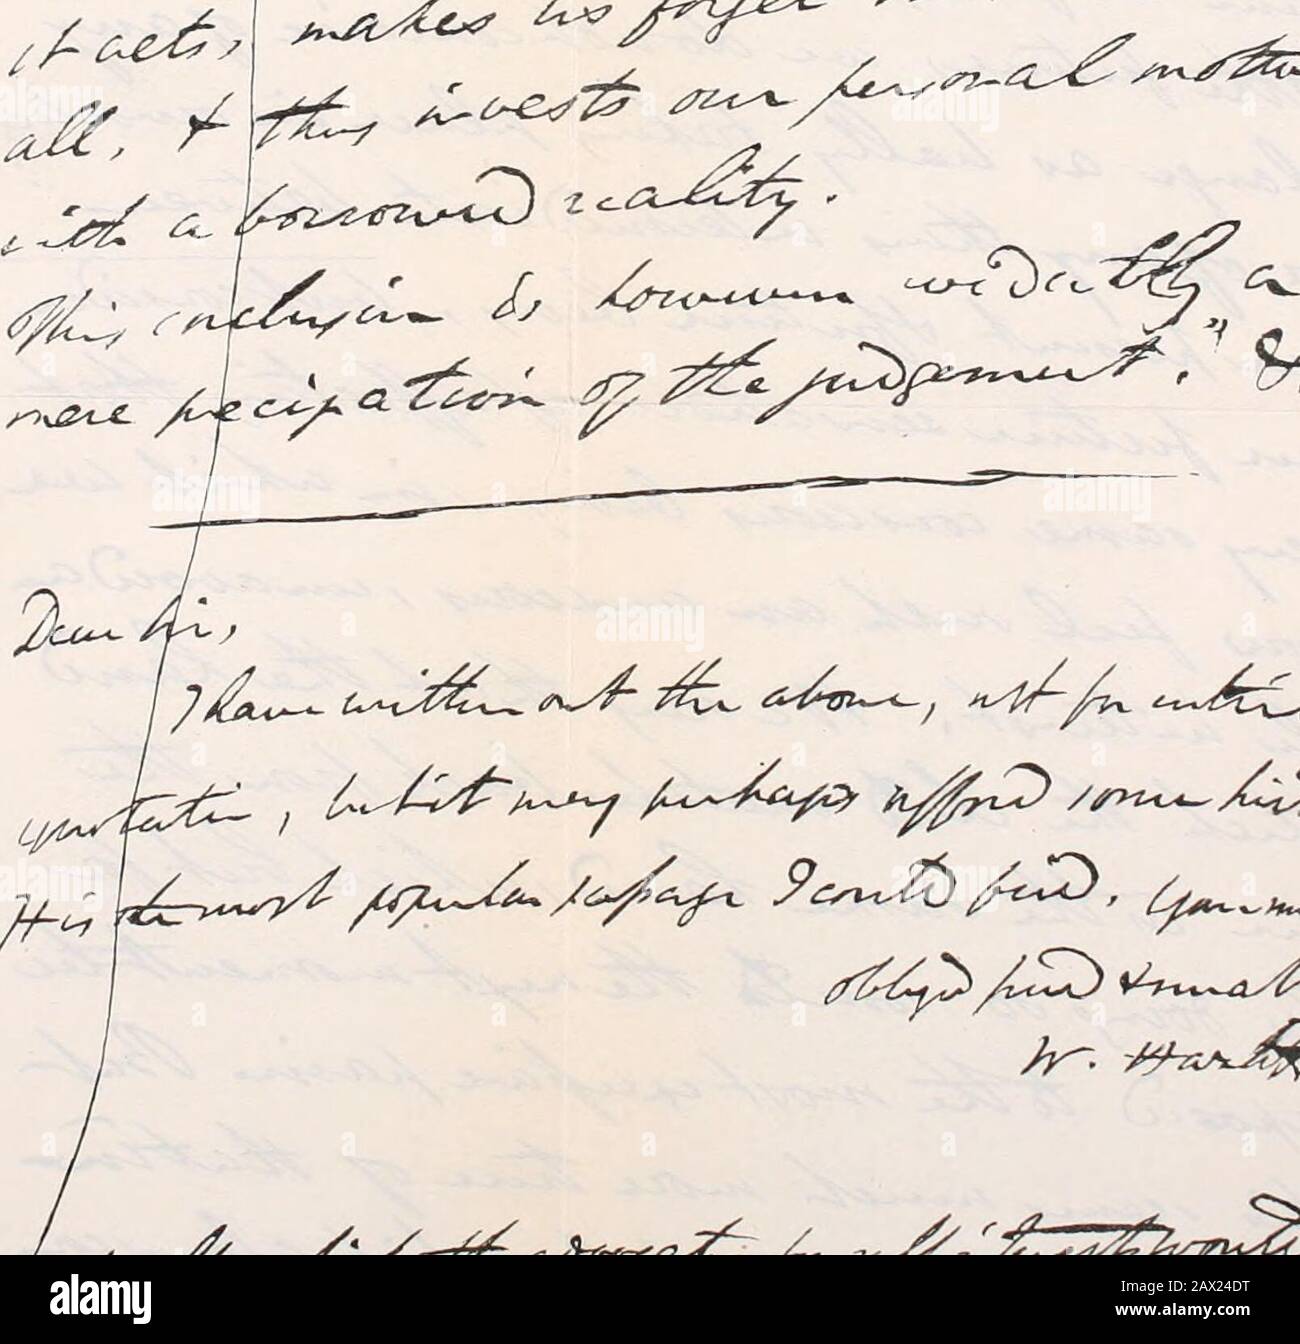 it acts, makes us forget
all, & thus invests our personal motiv
with a borrowed reality.
This conclusion is however evidently a
mere precipation of the judgement." &
Dear Sir,
I have written out the above, not for entire
quotation, but it may perhaps afford some hin
It is the most popular passage I could find.
oblig'd friend & servant
W. Hazlitt
alamy
Image ID: 2AX24DT
www.alamy.com